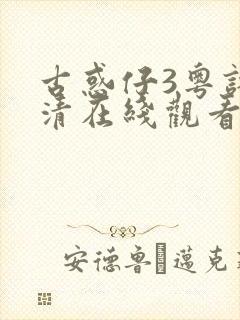 古惑仔3粤
清在綫觀看
安德鲁·邁克